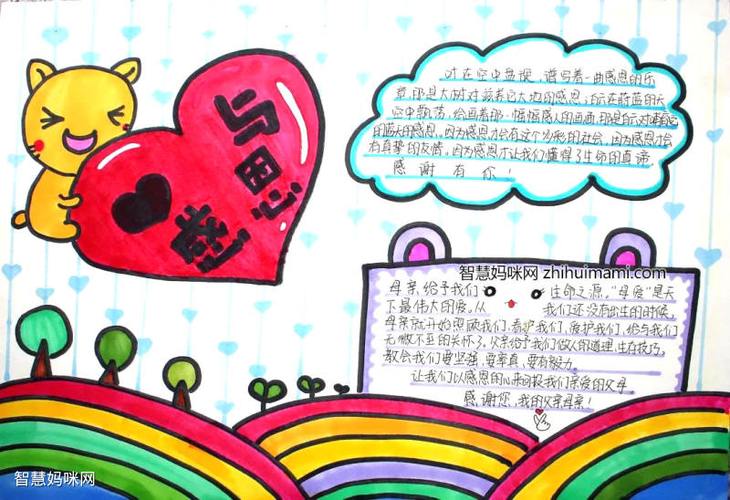 与
感恩
叶在空中盘旋，谱写着一曲感恩的乐
章，那是大树对滋养它大地的感恩；白云在蔚蓝的天
空中飘荡，绘画着那一幅幅感人的画面，那是白云对哺育它
的蓝天的感恩。因为感恩才会有这个多彩的社会，因为感恩才会
有真挚的友情，因为感恩才让我们懂得了生命的真谛
感谢有你！
智慧妈咪网 zhihuimami.com
母亲，给予我们生命之源，"母爱"是天
下最伟大的爱。从我们还没有出生的时候，
母亲就开始照顾我们，看护我们，爱护我们，给与我们
无微不至的关怀了。父亲给予我们做人的道理，生存技巧，
教会我们要坚强，要率真，要有毅力。
让我们以感恩的心来回报我们亲爱的父母
感谢您，我的父亲母亲！
智慧妈咪网